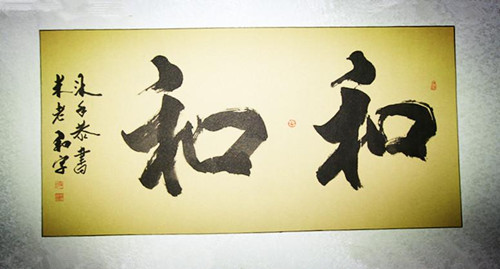 和和
恭書
米老和字